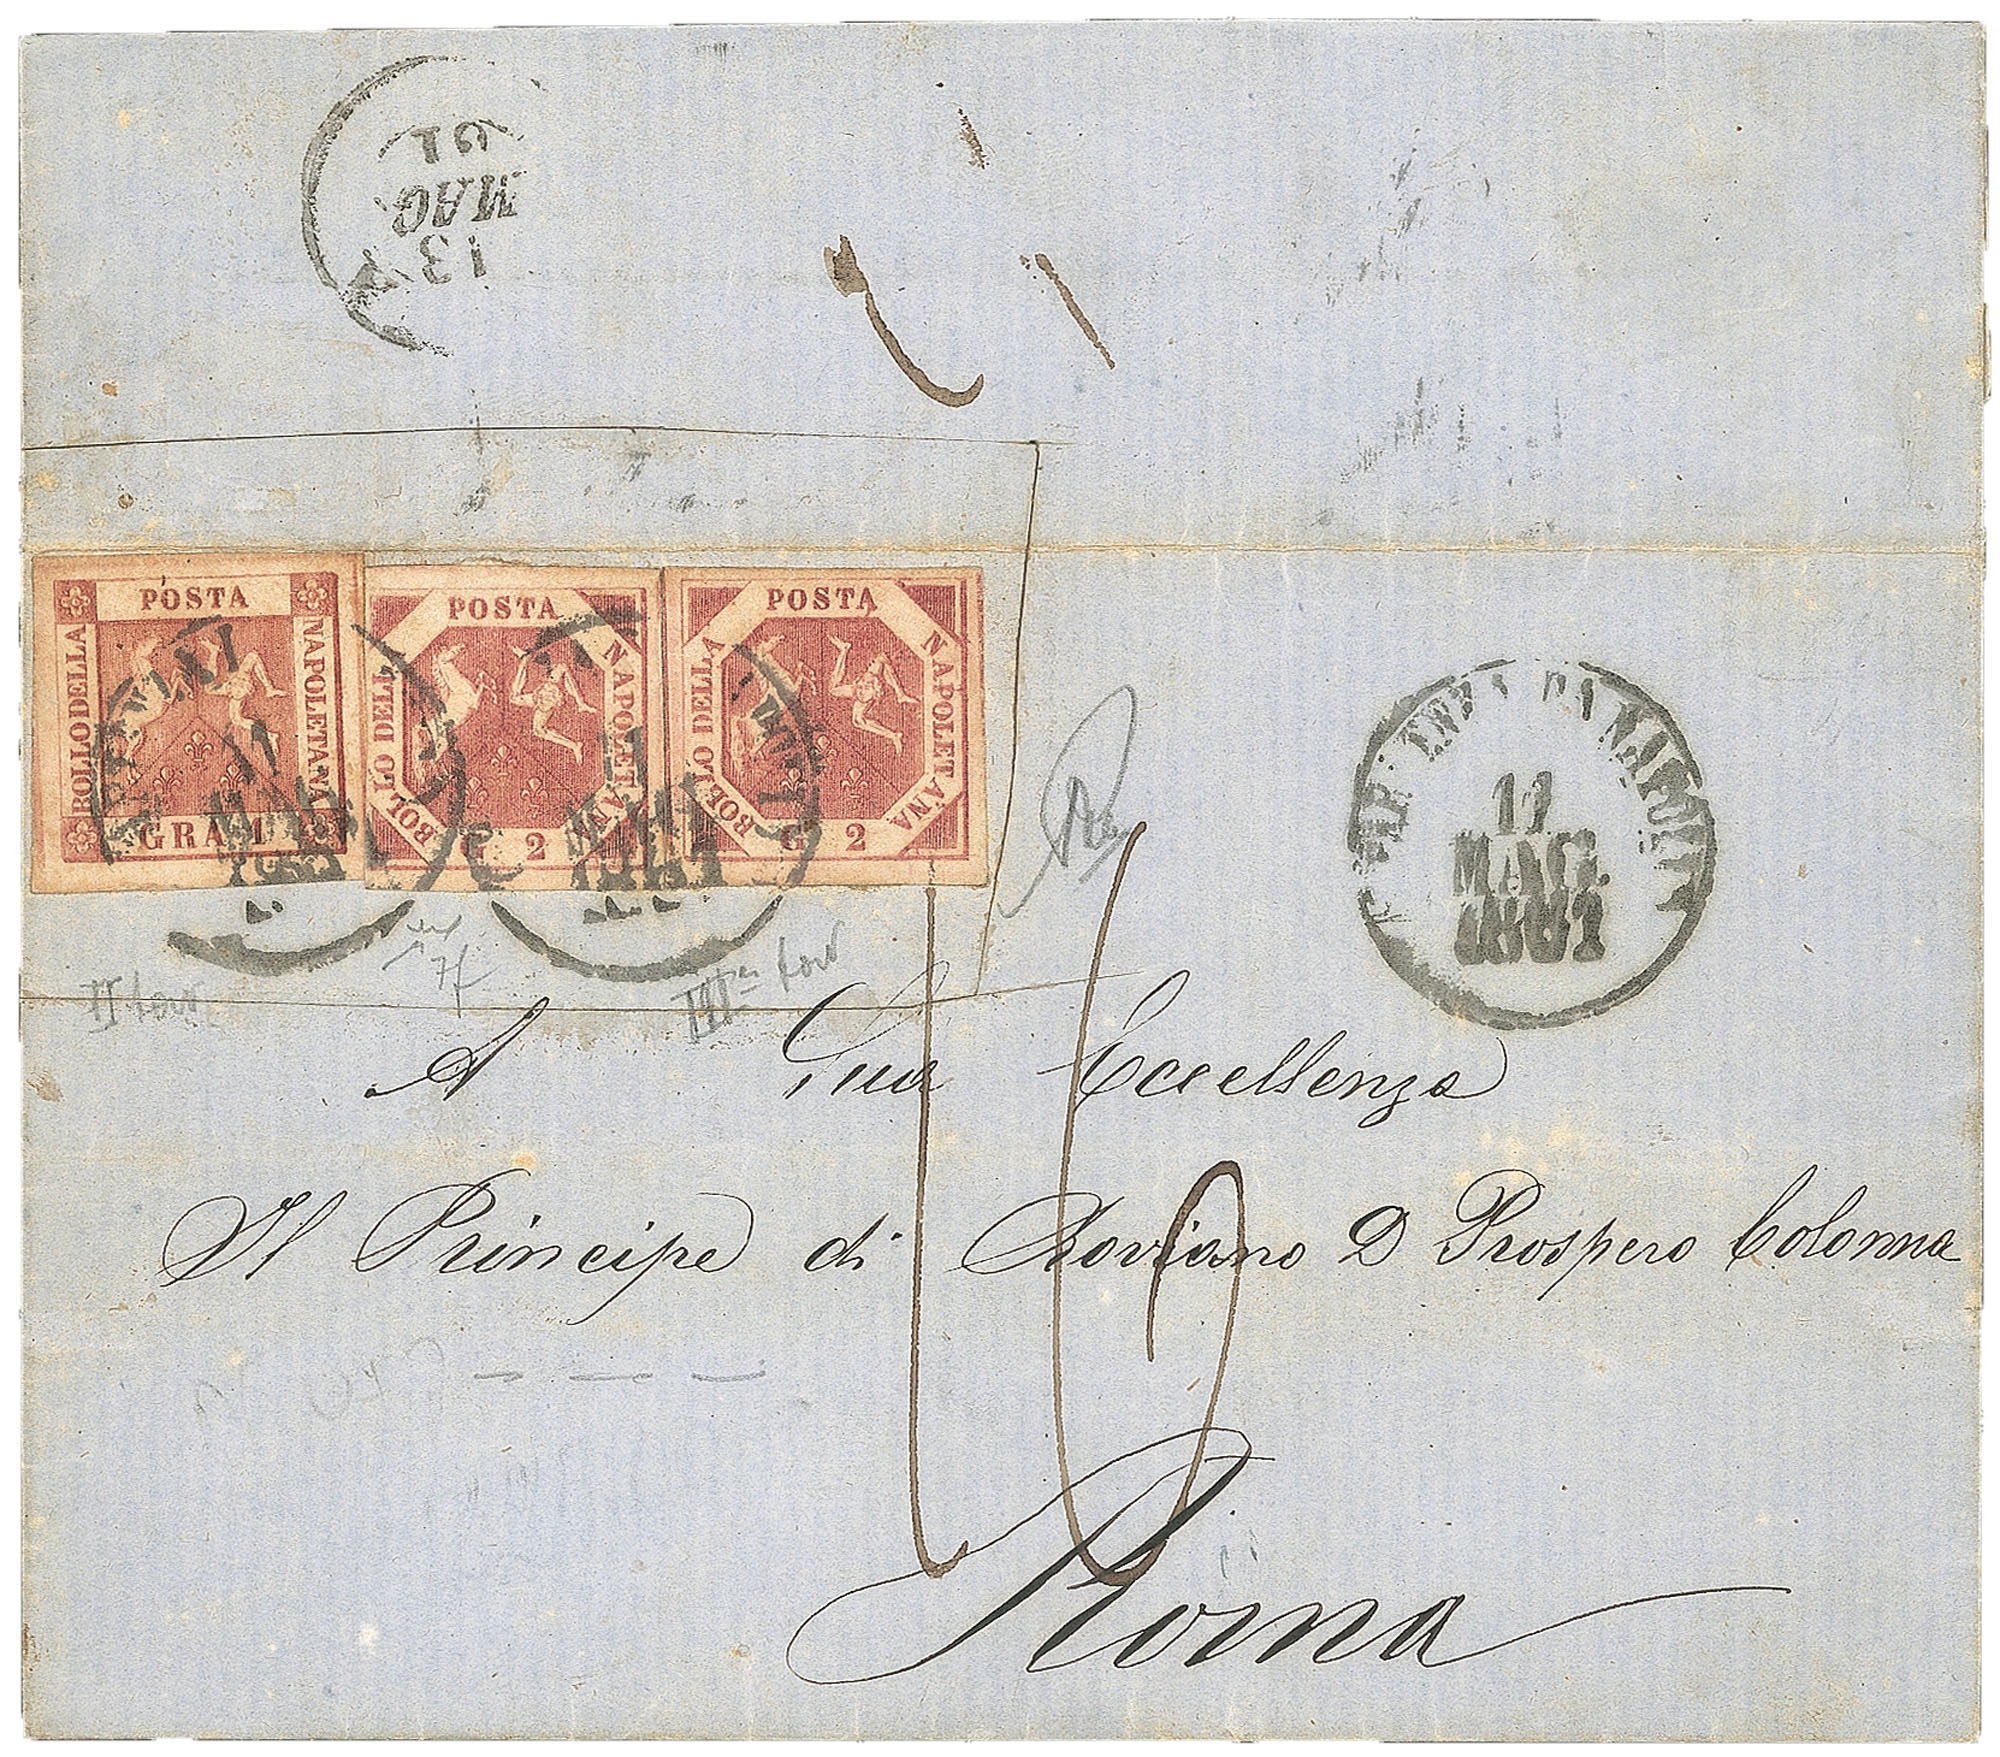 13
MAG
61
POSTA
BOLLO DELLA
NAPOLETANA
GRA 1
POSTA
BOLLO DELLA
NAPOLETANA
G 2
POSTA
BOLLO DELLA
NAPOLETANA
G 2
PARTENZA DA NAPOLI
11
MAG.
1861
II
III
16
A Sua Eccellenza
Il Principe di Roviano D Prospero Colonna
Roma